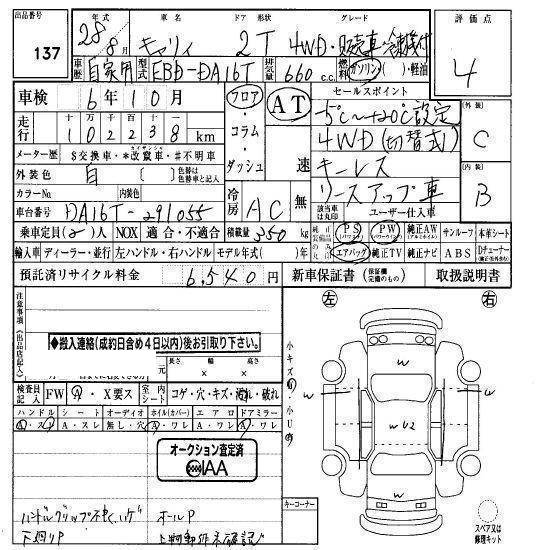 出品番号 137 年式 28年8月 車名 キャリィ ドア 形状 2T グレード 4WD・販売車・冷凍機付 評価点 4
車歴 自家用 型式 EBD-DA16T 排気量 660 c.c. 燃料 ガソリン( )・軽油
車検 6年10月 フロア・コラム・ダッシュ AT 速 セールスポイント
走行 十万 千百十一 102238 km -5℃~+20℃設定 外装 C
4WD(切替式)
メーター歴 $交換車・*改竄車・#不明車 キーレス
外装色 白 ( ) 色替は元色替車と記入 内装色 リースアップ車 内装 B
カラーNo. 冷房 AC 無 該当車は丸印 ユーザー仕入車
車台番号 DA16T-291055
乗車定員(2)人 NOX 適合・不適合 積載量 350kg 純正装備品の丸 PS (パワステ) PW (パワーウィンド) 純正AW (アルミホイル) サンルーフ 本革シート
輸入車 ディーラー・並行 左ハンドル・右ハンドル モデル年式( )年 エアバッグ 純正TV 純正ナビ ABS Dチューナー
預託済リサイクル料金 6,540円 新車保証書 (保証欄完備のもの) 取扱説明書
注意事項(出品店記入) 左 右
◆搬入連絡(成約日含め4日以内)後お引取り下さい。
長さ 幅 高さ
x x
小キズ・小U
検査員記入 FW A・X要ス 室内シート コゲ・穴・キズ・汚れ・破れ
ハンドル シート オーディオ ホイル(カバー) エアロ ドアミラー
A・スレ A・スレ 無し・穴 A・ワレ A・ワレ A・ワレ
オークション査定済
CIAA
W
W
W
WU2
W
キーコーナー
ハンドルグリップ オールP
下廻りP 上物動作未確認
スペア又は修理キット